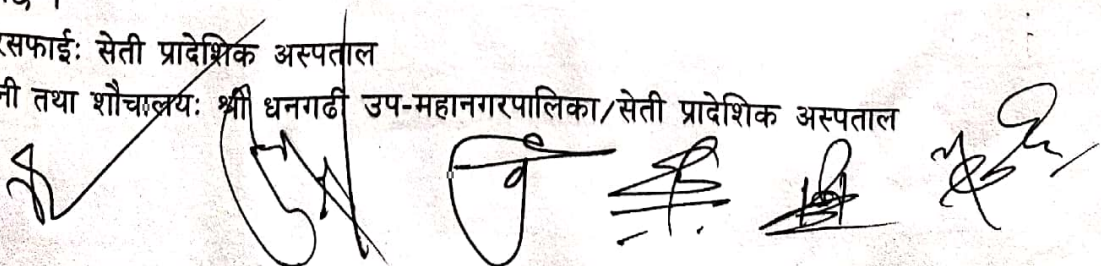 रसफाई: सेती प्रादेशिक अस्पताल
नी तथा शौचालय: श्री धनगढी उप-महानगरपालिका/सेती प्रादेशिक अस्पताल